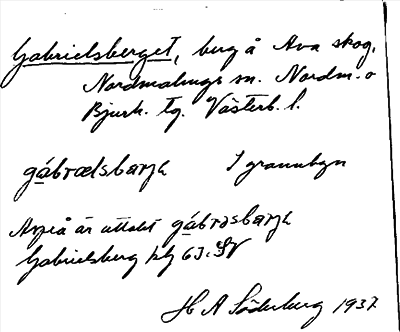 Gabrielsberget, berg å Ava skog,
Nordmalings sn. Nordm. o
Bjurh. tg. Västerb. l.
gábrælsbærjk I grannbyn
är uttalet gábrəsbærjk
Gabrielsberg blj 63. SV
H A Söderberg 1937